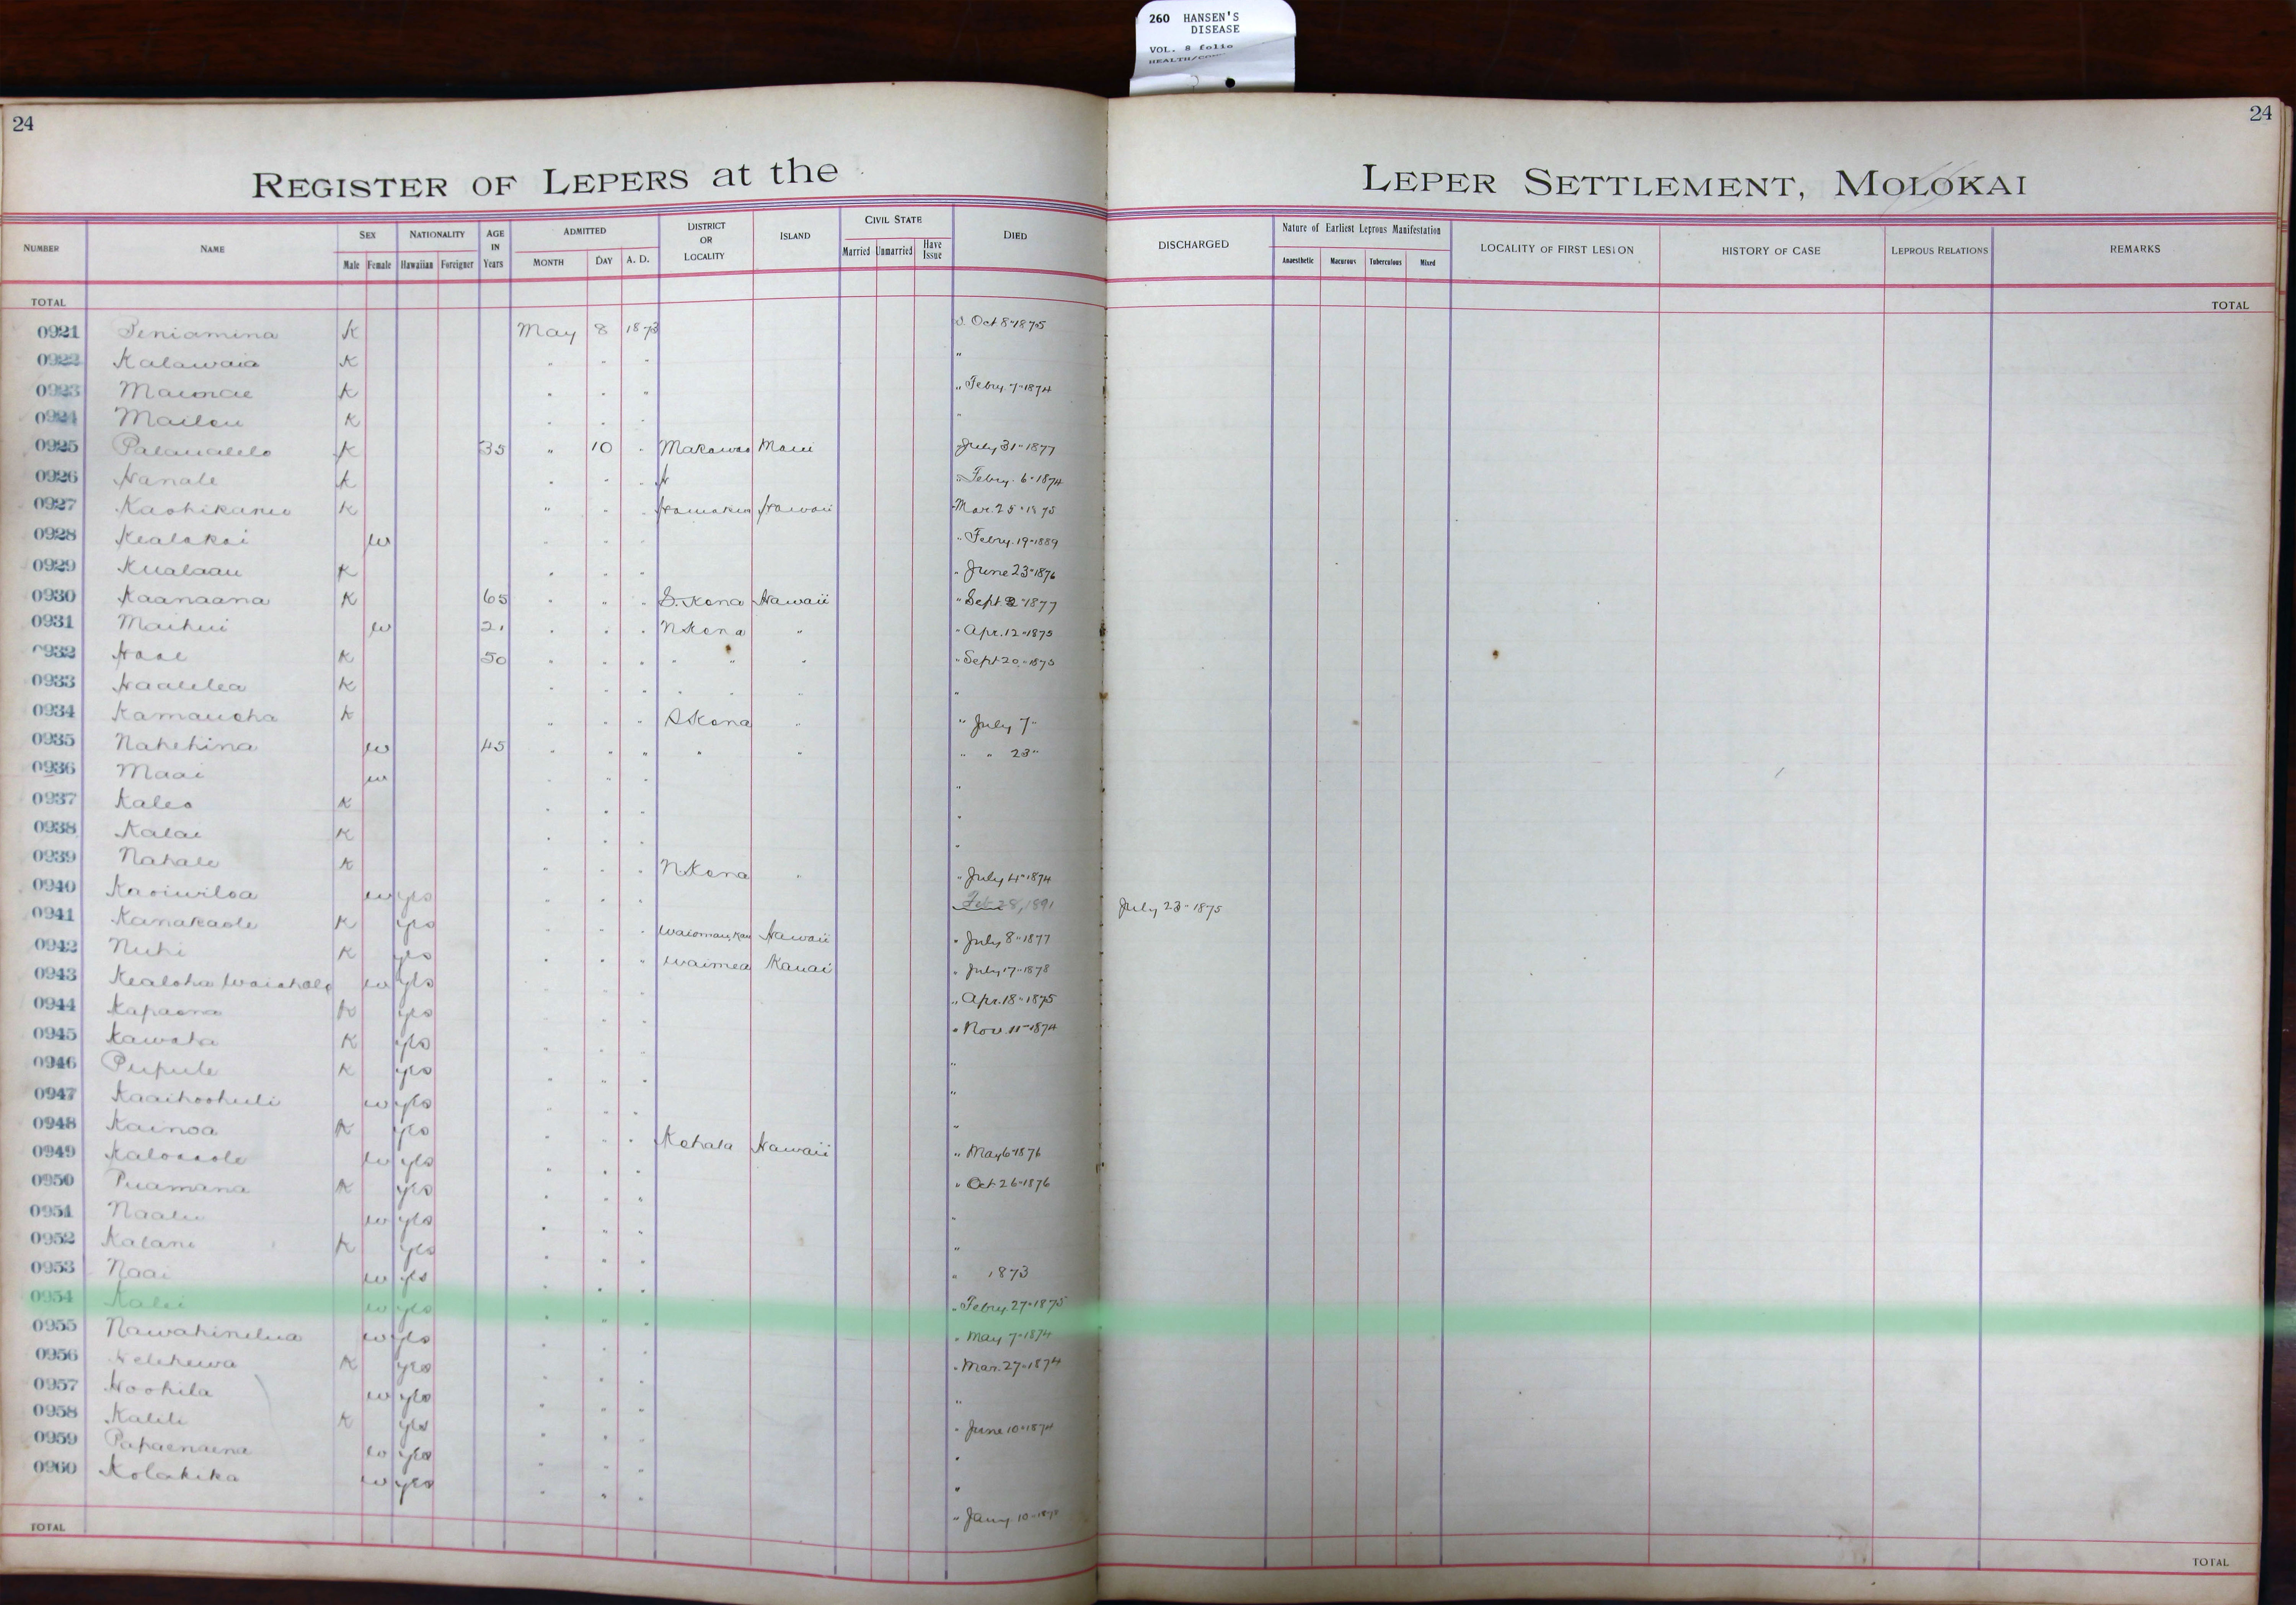 260 HANSEN'S
DISEASE
VOL. 8 folio
24
24
REGISTER OF LEPERS at the LEPER SETTLEMENT, MOLOKAI
NUMBER NAME SEX Male Female NATIONALITY Hawaiian Foreigner AGE IN Years ADMITTED MONTH DAY A. D. DISTRICT OR LOCALITY ISLAND CIVIL STATE Married Unmarried Have Issue DIED DISCHARGED Nature of Earliest Leprous Manifestation Anaesthetic Macurous Tuberculous Mixed LOCALITY OF FIRST LESION HISTORY OF CASE LEPROUS RELATIONS REMARKS
TOTAL TOTAL
0921 Peniamina K May 8 1873 Oct 8 " 1875
0922 Kalawaia K " " " "
0923 K " " " " Febry. 7 " 1874
0924 Mailou K " " " "
0925 Palaualelo K 35 " 10 " Makawao Maui July 31 " 1877
0926 Hanale K " " " H " Febry. 6 " 1874
0927 Kaohikanui K " " " Hamakua Hawaii Mar. 25 " 1875
0928 Kealakai w " " " " Febry. 19 " 1889
0929 Kualaau K " " " " June 23 " 1876
0930 Kaanaana K 65 " " " S. Kona Hawaii " Sept 2 " 1877
0931 Maihui w 21 " " " N Kona " " Apr. 12 " 1875
0932 K 50 " " " " " " " Sept 20 " 1875
0933 Haalilea K " " " " " " "
0934 Kamauoha K " " " S Kona " " July 7 "
0935 Nahehina w 45 " " " " " " " 23 "
0936 Maai w " " " "
0937 Kaleo K " " " "
0938 Kalai K " " " "
0939 Nahale K " " " N Kona " " July 4 " 1874
0940 Kaoiwiloa w yes " " " Feb 28, 1891 July 23 " 1875
0941 Kanakaole K yes " " " Hawaii " July 8 " 1877
0942 Nuhi K yes " " " Waimea Kauai " July 17 " 1878
0943 Kealoha w yes " " " " Apr. 18 " 1875
0944 Kapaona K yes " " " " Nov. 11 " 1874
0945 Kawaha K yes " " " "
0946 Pupule K yes " " " "
0947 Kaaihoohuli w yes " " " "
0948 Kainoa K yes " " " Kohala Hawaii " May 6 " 1876
0949 w yes " " " " Oct 26 " 1876
0950 Puamana K yes " " " "
0951 Naalu w yes " " " "
0952 Kalani K yes " " " " 1873
0953 Naai w yes " " " " Febry. 27 " 1875
0954 Kalei w yes " " " " May 7 " 1874
0955 Nawahinelua w yes " " " " Mar. 27 " 1874
0956 K yes " " " "
0957 Hoohila w yes " " " " June 10 " 1874
0958 Kalili K yes " " " "
0959 Papaenaena w yes " " " "
0960 Kolakika w yes " " " " Jany. 10 "
TOTAL TOTAL